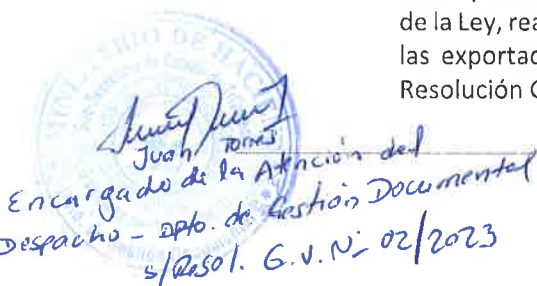 de la Ley, rea
las exportac
Resolución G
MINISTERIO DE HACI
Juan Torres
Encargado de la Atención del
Despacho - Dpto. de Gestión Documental
s/Resol. G.V. Nº 02/2023